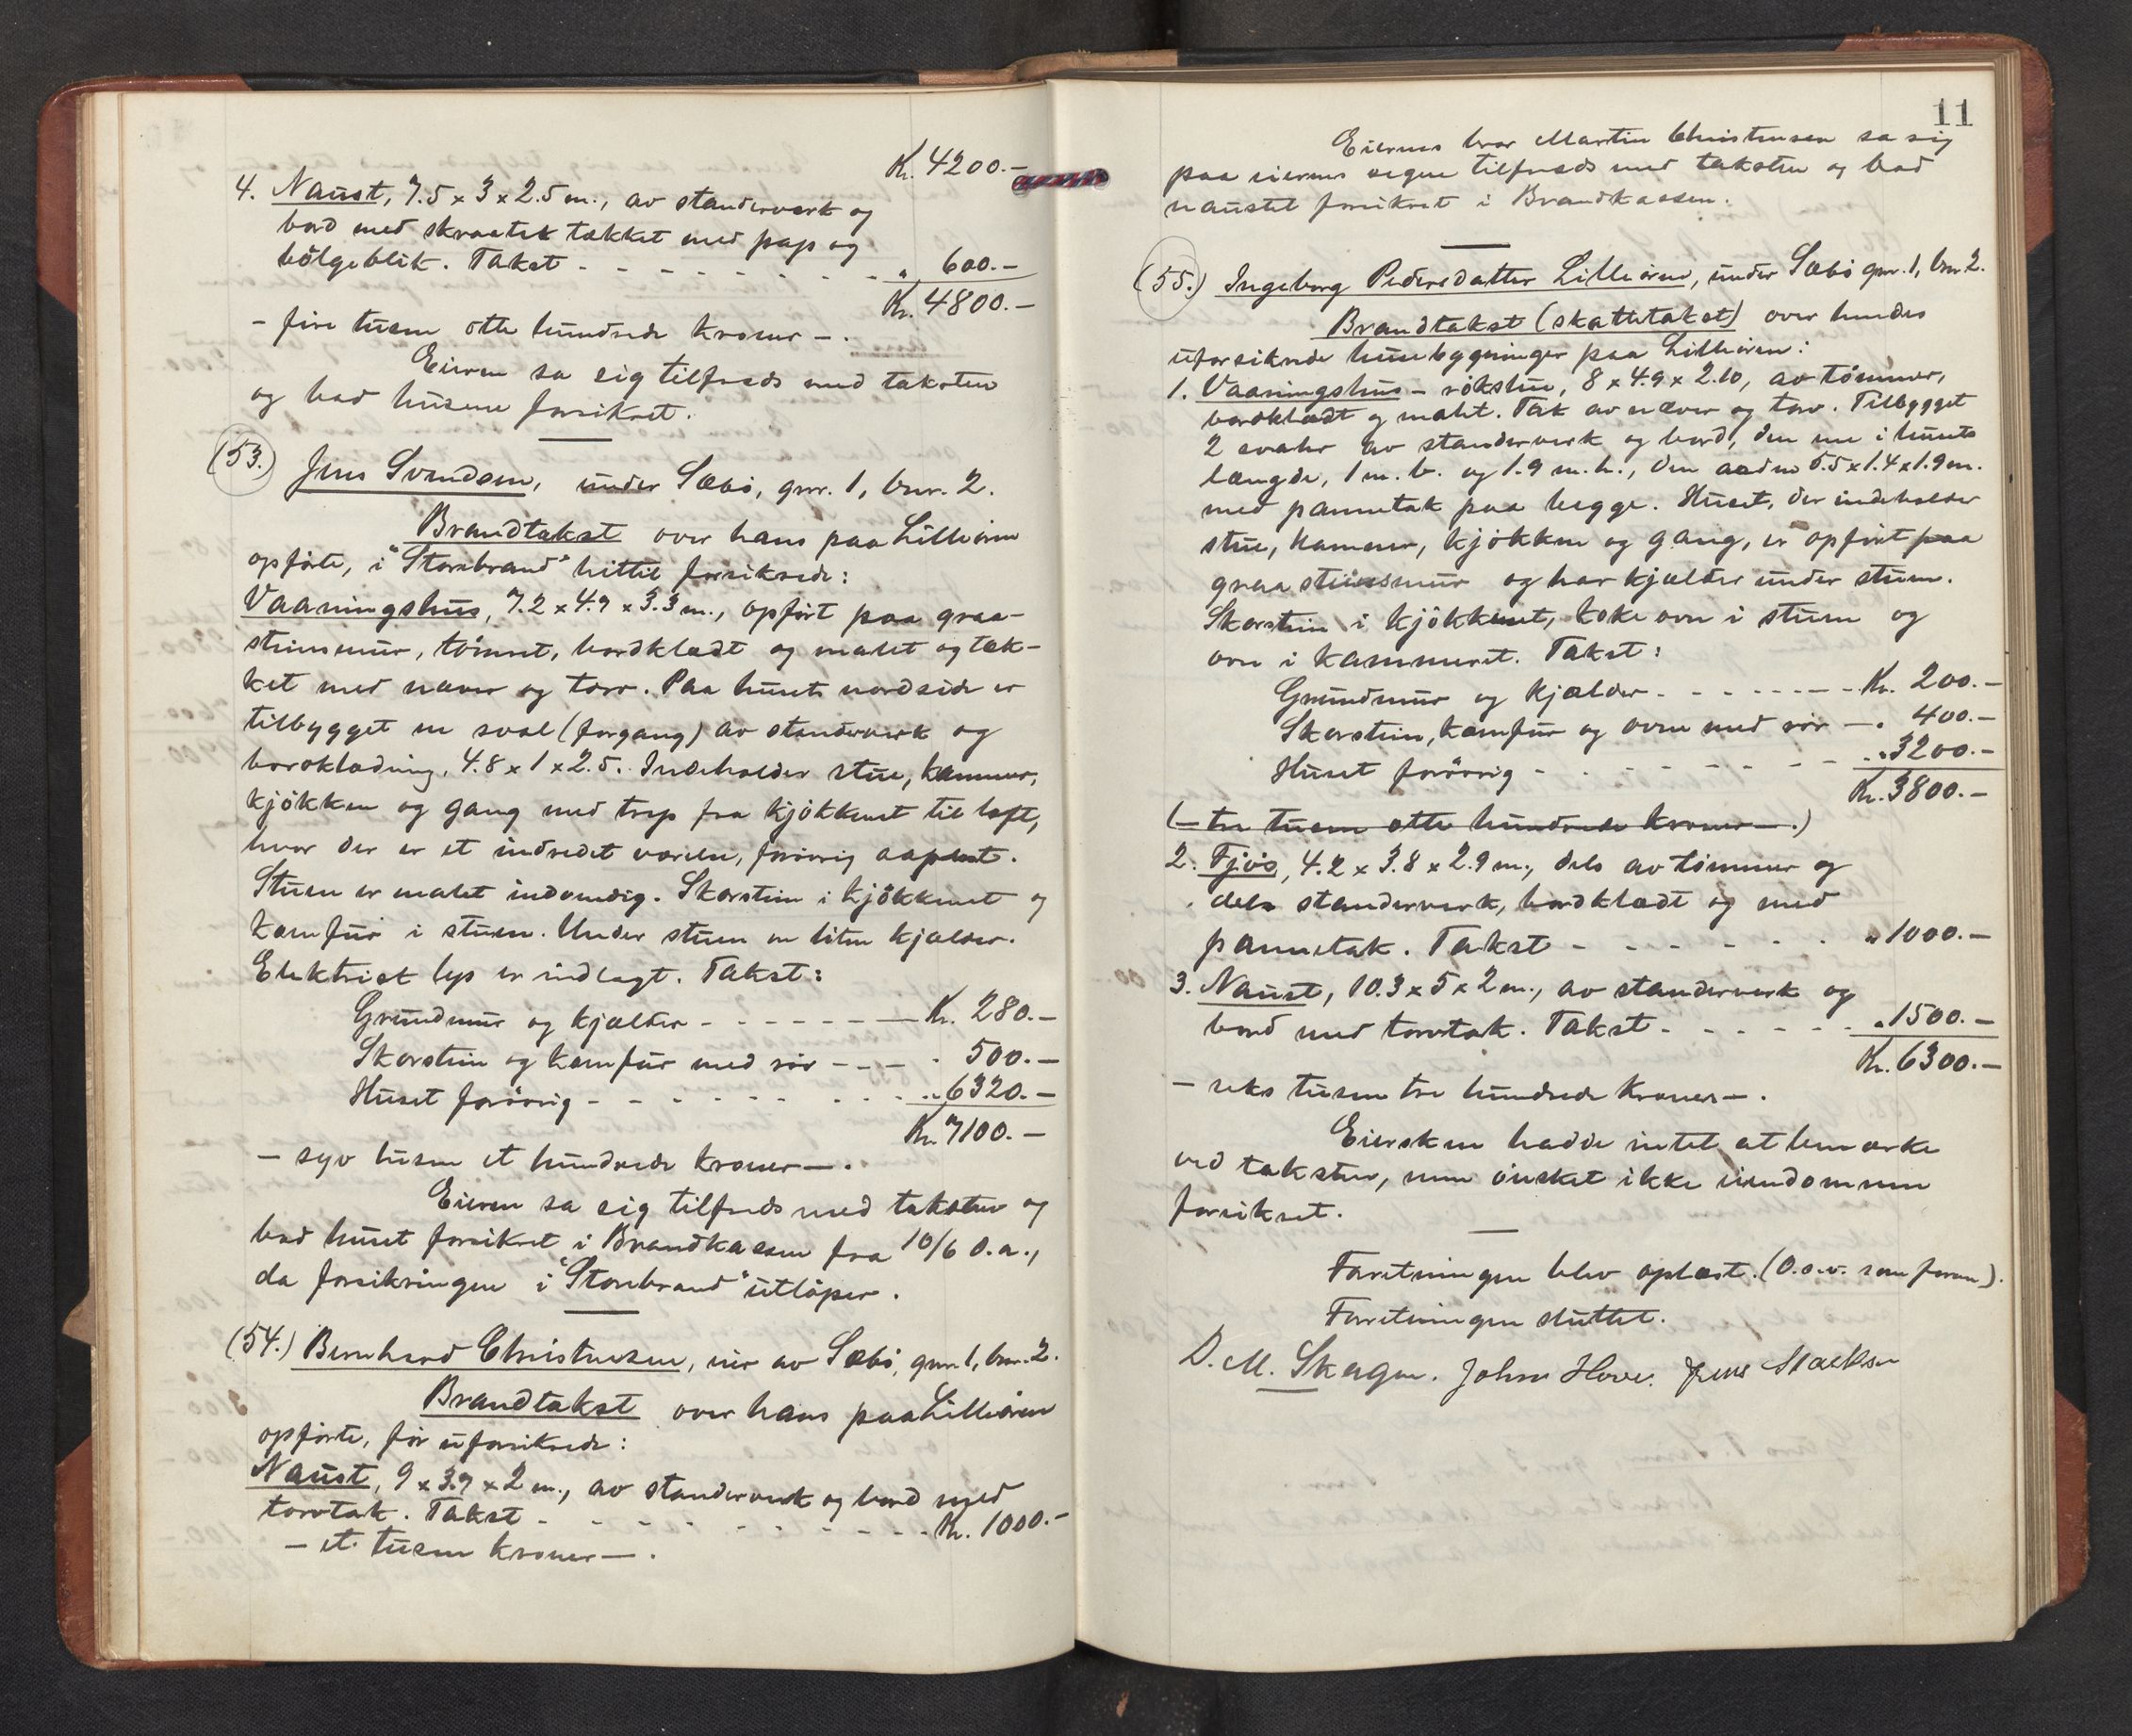 Kr. 4200.-
4. Naust, 7.5 x 3 x 2.5 m., av standerverk og
bord med skraatak tækket med pap og
bölgeblik. Takst - - - - - - - - „ 600.-
Kr. 4800.-
- fire tusen otte hundrede kroner -.
Eieren sa sig tilfreds med taksten
og bad husene forsikret.
(53.) Jens Svendsen, under Sæbö, gnr. 1, bnr. 2.
Brandtakst over hans paa Lilleören
opförte, i "Storebrand" hittil forsikrede:
Vaaningshus, 7.2 x 4.9 x 3.3 m., opfört paa graa-
stensmur, tömret, bordklædt og malet og tæk-
ket med næver og torv. Paa husets nordside er
tilbygget en sval (forgang) av standerverk og
bordklædning, 4.8 x 1 x 2.5. Indeholder stue, kammer,
kjökken og gang med trap fra kjökkenet til loft,
hvor der er et indredet værelse, forövrig aapent.
Stuen er malet indvendig. Skorsten i kjökkenet og
komfur i stuen. Under stuen en liten kjælder.
Elektrisk lys er indlagt. Takst:
Grundmur og kjælder - - - - - - - Kr. 280.-
Skorsten og komfur med rör - - - „ 500.-
Huset forövrig - - - - - - - - „ 6320.-
Kr. 7100.-
- syv tusen et hundrede kroner -.
Eieren sa sig tilfreds med taksten og
bad huset forsikret i Brandkassen fra 10/6 d.a.,
da forsikringen i "Storebrand" utlöper.
(54.) Bernhard Christensen, eier av Sæbö, gnr. 1, bnr. 2.
Brandtakst over hans paa Lilleören
opförte, för uforsikrede:
Naust, 9 x 3.7 x 2 m., av standerverk og bord med
torvtak. Takst - - - - - - - - - Kr. 1000.-
- et tusen kroner -.
11
Eierens bror Martin Christensen sa sig
paa eierens vegne tilfreds med taksten og bad
naustet forsikret i Brandkassen.
(55.) Ingeborg Pedersdatter Lilleören, under Sæbö gnr. 1, bnr. 2.
Brandtakst (skattetakst) over hendes
uforsikrede husebygninger paa Lilleören:
1. Vaaningshus - rökstue, 8 x 4.9 x 2.10, av tömmer,
bordklædt og malet. Tak av næver og torv. Tilbygget
2 svaler av standerverk og bord, den ene i husets
længde, 1 m. b. og 1.9 m. h., den anden 5.5 x 1.4 x 1.9 m.
med pannetak paa begge. Huset, der indeholder
stue, kammer, kjökken og gang, er opfört paa
graastensmur og har kjælder under stuen.
Skorsten i kjökkenet, kokeovn i stuen og
ovn i kammeret. Takst:
Grundmur og kjælder - - - - - - - Kr. 200.-
Skorsten, komfur og ovne med rör - „ 400.-
Huset forövrig - - - - - - - - „ 3200.-
Kr. 3800.-
(- tre tusen otte hundrede kroner -.)
2. Fjös, 4.2 x 3.8 x 2.9 m., dels av tömmer og
dels standerverk, bordklædt og med
pannetak. Takst - - - - - - - „ 1000.-
3. Naust, 10.3 x 5 x 2 m., av standerverk og
bord med torvtak. Takst - - - - - - „ 1500.-
Kr. 6300.-
- seks tusen tre hundrede kroner -.
Eiersken hadde intet at bemerke
ved taksten, men önsket ikke eiendommen
forsikret.
Forretningen blev oplæst. (O.s.v. som foran).
Forretningen sluttet.
D. M. Skagen. John Hove. Jens